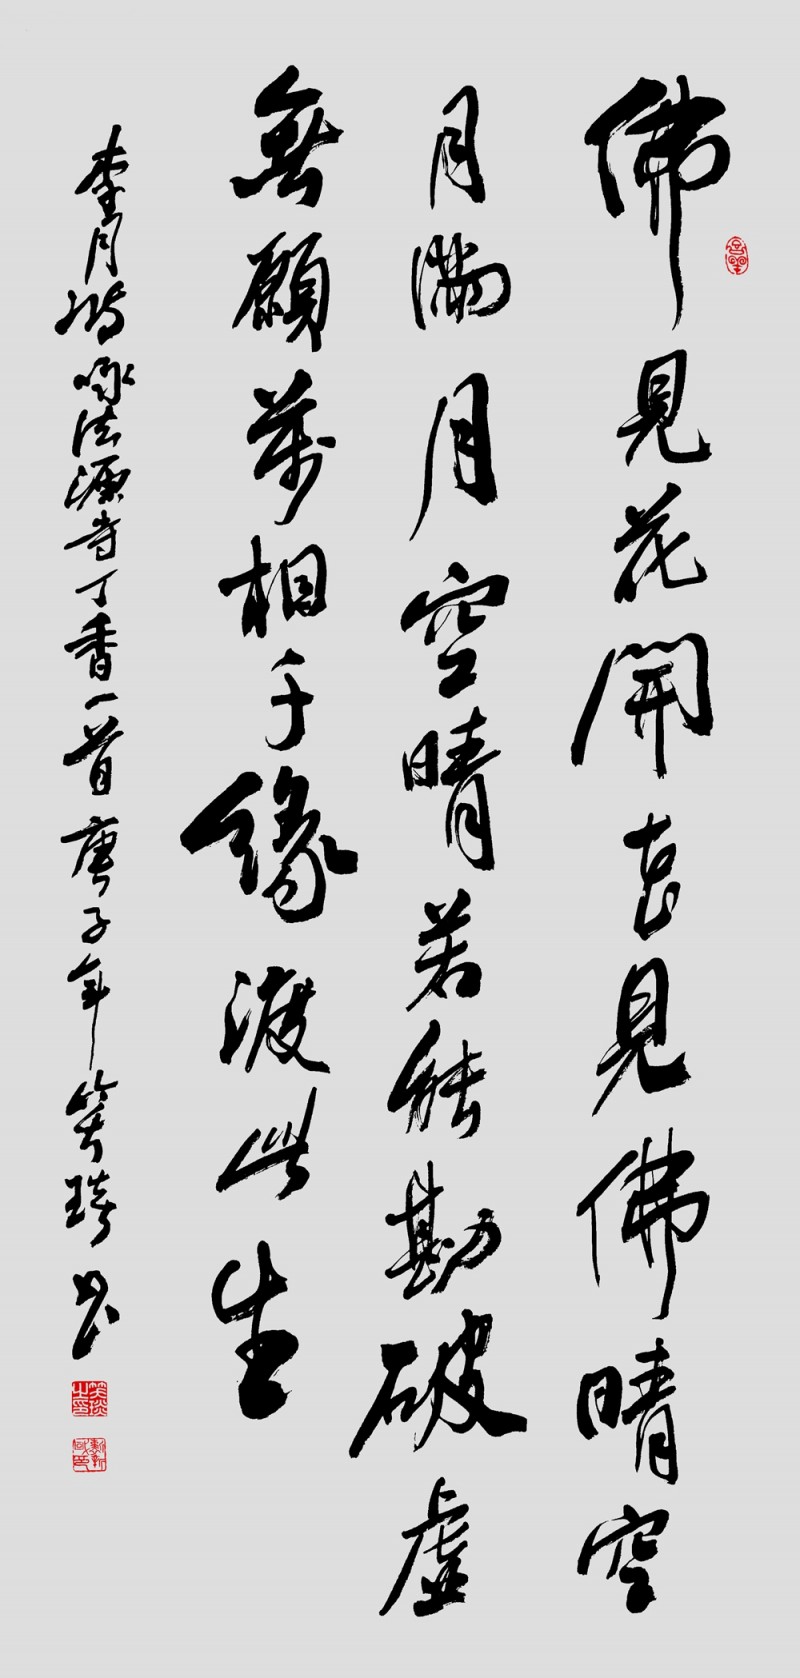 佛見花開花見佛晴空
月滿月空晴若能勘破虛
無願萬相千緣渡此生
李月 詠法源寺丁香一首庚子年 琦書